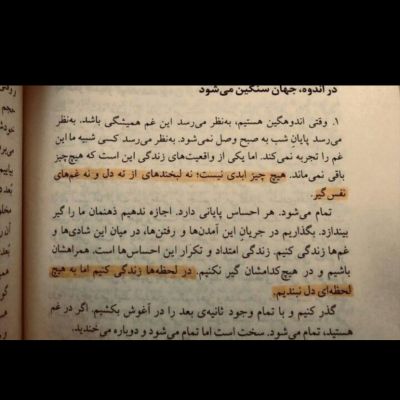 در اندوه، جهان سنگین می‌شود
۱. وقتی اندوهگین هستیم، به‌نظر می‌رسد این غم همیشگی باشد. به‌نظر
می‌رسد پایان شب به صبح وصل نمی‌شود. به‌نظر می‌رسد کسی شبیه ما این
غم را تجربه نمی‌کند. اما یکی از واقعیت‌های زندگی این است که هیچ‌چیز
باقی نمی‌ماند. هیچ چیز ابدی نیست؛ نه لبخندهای از ته دل و نه غم‌های
نفس‌گیر.
تمام می‌شود. هر احساس پایانی دارد. اجازه ندهیم ذهنمان ما را گیر
بیندازد. بگذاریم در جریانِ این آمدن‌ها و رفتن‌ها، در میان این شادی‌ها و
غم‌ها زندگی کنیم. زندگی امتداد و تکرار این احساس‌ها است. همراهشان
باشیم و در هیچ‌کدامشان گیر نکنیم. در لحظه‌ها زندگی کنیم اما به هیچ
لحظه‌ای دل نبندیم.
گذر کنیم و با تمام وجود ثانیه‌ی بعد را در آغوش بکشیم. اگر در غم
هستید، تمام می‌شود. سخت است اما تمام می‌شود و دوباره می‌خندید.